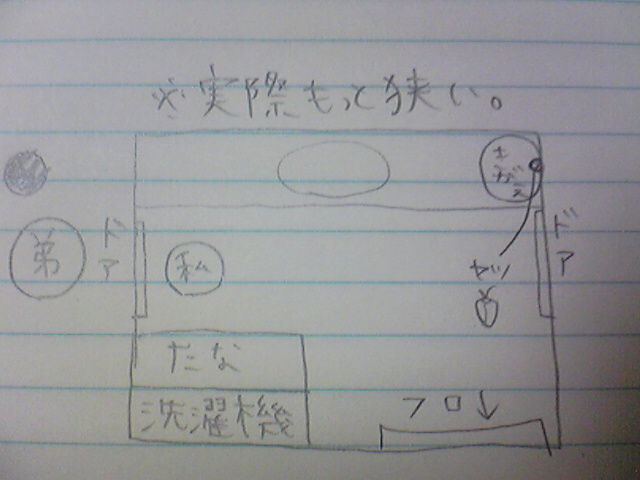 ※実際もっと狭い。
きがえ
ドア
弟
ドア
私
ヤツ
たな
洗濯機
フロ↓